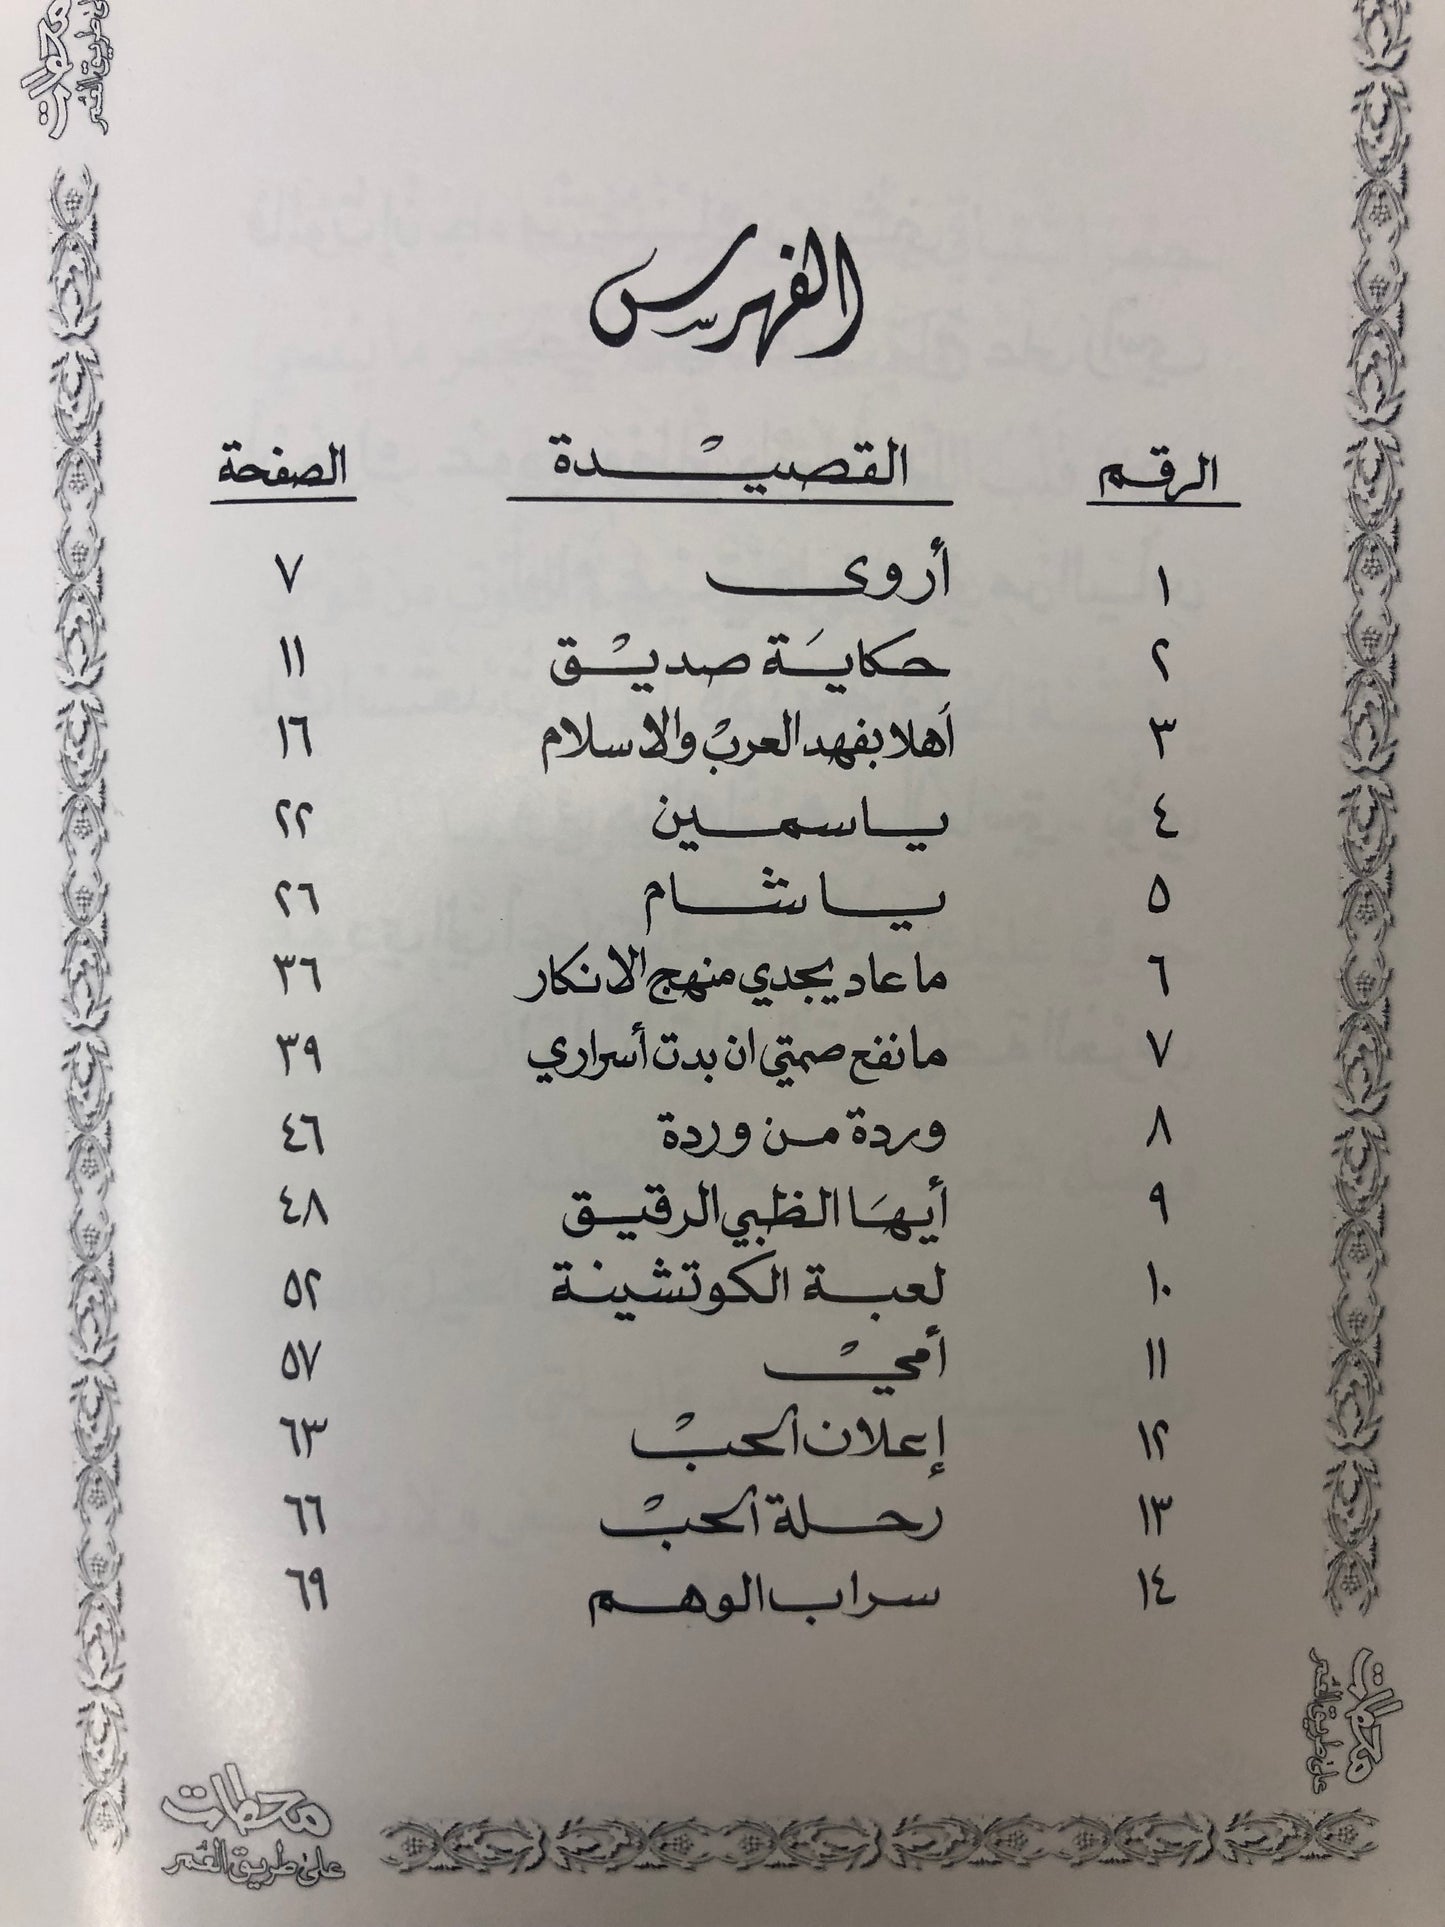 محطات
على طريق العمر
الفهرس
الرقم القصيدة الصفحة
١ أروى ٧
٢ حكاية صديق ١١
٣ أهلا بفهد العرب والاسلام ١٦
٤ ياسمين ٢٢
٥ يا شام ٢٦
٦ ما عاد يجدي منهج الانكار ٣٦
٧ ما نفع صمتي ان بدت أسراري ٣٩
٨ وردة من وردة ٤٦
٩ أيها الظبي الرقيق ٤٨
١٠ لعبة الكوتشينة ٥٢
١١ أمي ٥٧
١٢ إعلان الحب ٦٣
١٣ رحلة الحب ٦٦
١٤ سراب الوهم ٦٩
محطات
على طريق العمر
محطات
على طريق العمر